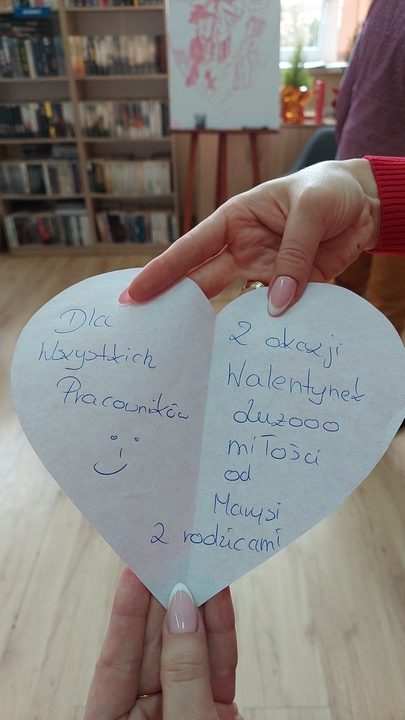 Dla
Wszystkich
Pracowników
Z okazji
Walentynek
duzooo
miłości
od
Marysi
z rodzicami